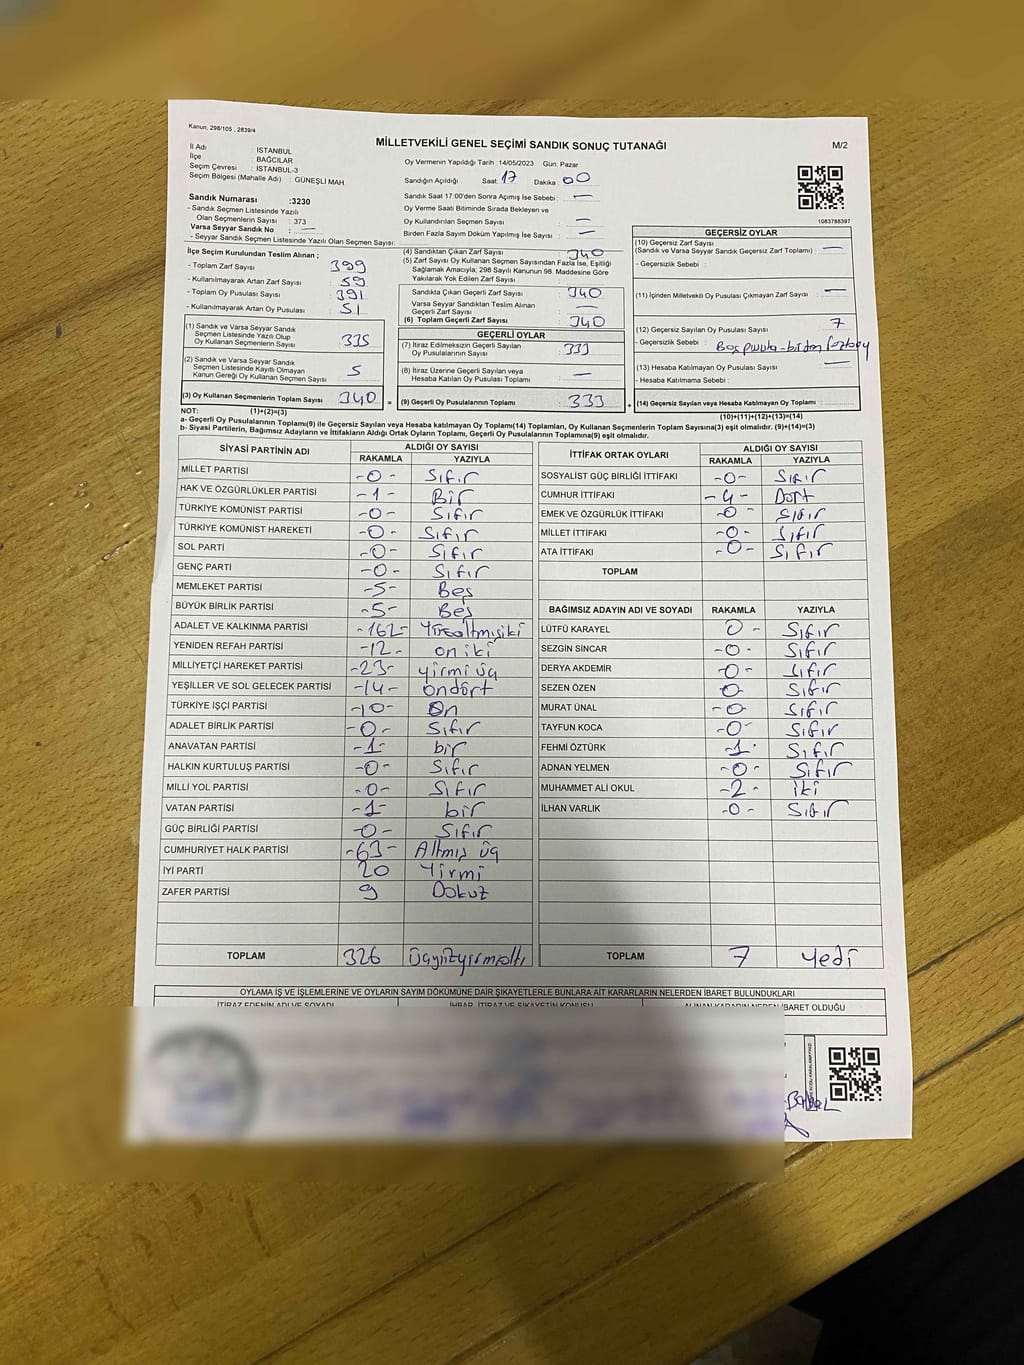 Kanun; 298/105 , 2839/4
MİLLETVEKİLİ GENEL SEÇİMİ SANDIK SONUÇ TUTANAĞI
M/2
İl Adı : İSTANBUL
İlçe : BAĞCILAR
Seçim Çevresi : İSTANBUL-3
Seçim Bölgesi (Mahalle Adı) : GÜNEŞLİ MAH
Oy Vermenin Yapıldığı Tarih : 14/05/2023 Gün: Pazar
Sandığın Açıldığı Saat: 17 Dakika : 00
Sandık Saat 17:00'den Sonra Açımış İse Sebebi : —
Oy Verme Saati Bitiminde Sırada Bekleyen ve
Oy Kullandırılan Seçmen Sayısı : —
Birden Fazla Sayım Döküm Yapılmış İse Sayısı : —
1083788397
Sandık Numarası :3230
- Sandık Seçmen Listesinde Yazılı
Olan Seçmenlerin Sayısı : 373
Varsa Seyyar Sandık No : —
- Seyyar Sandık Seçmen Listesinde Yazılı Olan Seçmen Sayısı:
İlçe Seçim Kurulundan Teslim Alınan ;
- Toplam Zarf Sayısı : 399
- Kullanılmayarak Artan Zarf Sayısı : 59
- Toplam Oy Pusulası Sayısı : 391
- Kullanılmayarak Artan Oy Pusulası : 51
(1) Sandık ve Varsa Seyyar Sandık
Seçmen Listesinde Yazılı Olup
Oy Kullanan Seçmenlerin Sayısı : 335
(2) Sandık ve Varsa Seyyar Sandık
Seçmen Listesinde Kayıtlı Olmayan
Kanun Gereği Oy Kullanan Seçmen Sayısı : 5
(3) Oy Kullanan Seçmenlerin Toplam Sayısı : 340
(1)+(2)=(3)
(4) Sandıktan Çıkan Zarf Sayısı : 340
(5) Zarf Sayısı Oy Kullanan Seçmen Sayısından Fazla İse, Eşitliği
Sağlamak Amacıyla; 298 Sayılı Kanunun 98. Maddesine Göre
Yakılarak Yok Edilen Zarf Sayısı :
Sandıkta Çıkan Geçerli Zarf Sayısı : 340
Varsa Seyyar Sandıktan Teslim Alınan
Geçerli Zarf Sayısı :
(6) Toplam Geçerli Zarf Sayısı : 340
GEÇERLİ OYLAR
(7) İtiraz Edilmeksizin Geçerli Sayılan
Oy Pusulalarının Sayısı : 333
(8) İtiraz Üzerine Geçerli Sayılan veya
Hesaba Katılan Oy Pusulası Toplamı : —
(9) Geçerli Oy Pusulalarının Toplamı : 333
GEÇERSİZ OYLAR
(10) Geçersiz Zarf Sayısı
(Sandık ve Varsa Seyyar Sandık Geçersiz Zarf Toplamı) : —
- Geçersizlik Sebebi :
(11) İçinden Milletvekili Oy Pusulası Çıkmayan Zarf Sayısı : —
(12) Geçersiz Sayılan Oy Pusulası Sayısı : 7
- Geçersizlik Sebebi :
(13) Hesaba Katılmayan Oy Pusulası Sayısı : —
- Hesaba Katılmama Sebebi :
(14) Geçersiz Sayılan veya Hesaba Katılmayan Oy Toplamı :
(10)+(11)+(12)+(13)=(14)
NOT:
a- Geçerli Oy Pusulalarının Toplamı(9) ile Geçersiz Sayılan veya Hesaba Katılmayan Oy Toplamı(14) Toplamları, Oy Kullanan Seçmenlerin Toplam Sayısına(3) eşit olmalıdır. (9)+(14)=(3)
b- Siyasi Partilerin, Bağımsız Adayların ve İttifakların Aldığı Ortak Oyların Toplamı, Geçerli Oy Pusulalarının Toplamına(9) eşit olmalıdır.
SİYASİ PARTİNİN ADI ALDIĞI OY SAYISI
RAKAMLA YAZIYLA
MİLLET PARTİSİ -0- Sıfır
HAK VE ÖZGÜRLÜKLER PARTİSİ -1- Bir
TÜRKİYE KOMÜNİST PARTİSİ -0- Sıfır
TÜRKİYE KOMÜNİST HAREKETİ -0- Sıfır
SOL PARTİ -0- Sıfır
GENÇ PARTİ -0- Sıfır
MEMLEKET PARTİSİ -5- Beş
BÜYÜK BİRLİK PARTİSİ -5- Beş
ADALET VE KALKINMA PARTİSİ -162-
YENİDEN REFAH PARTİSİ -12- on iki
MİLLİYETÇİ HAREKET PARTİSİ -23- yirmi üç
YEŞİLLER VE SOL GELECEK PARTİSİ -14- ondört
TÜRKİYE İŞÇİ PARTİSİ -10- On
ADALET BİRLİK PARTİSİ -0- Sıfır
ANAVATAN PARTİSİ -1- bir
HALKIN KURTULUŞ PARTİSİ -0- Sıfır
MİLLİ YOL PARTİSİ -0- Sıfır
VATAN PARTİSİ -1- bir
GÜÇ BİRLİĞİ PARTİSİ -0- Sıfır
CUMHURİYET HALK PARTİSİ -63- Altmış üç
İYİ PARTİ 20 Yirmi
ZAFER PARTİSİ 9 Dokuz
TOPLAM 326 üçyüzyirmialtı
İTTİFAK ORTAK OYLARI ALDIĞI OY SAYISI
RAKAMLA YAZIYLA
SOSYALİST GÜÇ BİRLİĞİ İTTİFAKI -0- Sıfır
CUMHUR İTTİFAKI -4- Dört
EMEK VE ÖZGÜRLÜK İTTİFAKI -0- Sıfır
MİLLET İTTİFAKI -0- Sıfır
ATA İTTİFAKI -0- Sıfır
TOPLAM
BAĞIMSIZ ADAYIN ADI VE SOYADI RAKAMLA YAZIYLA
LÜTFÜ KARAYEL 0- Sıfır
SEZGİN SİNCAR -0- Sıfır
DERYA AKDEMİR -0- Sıfır
SEZEN ÖZEN 0 Sıfır
MURAT ÜNAL -0- Sıfır
TAYFUN KOCA -0- Sıfır
FEHMİ ÖZTÜRK -1- Sıfır
ADNAN YELMEN -0- Sıfır
MUHAMMET ALİ OKUL -2- iki
İLHAN VARLIK -0- Sıfır
TOPLAM 7 Yedi
OYLAMA İŞ VE İŞLEMLERİNE VE OYLARIN SAYIM DÖKÜMÜNE DAİR ŞİKAYETLERLE BUNLARA AİT KARARLARIN NELERDEN İBARET BULUNDUKLARI
İTİRAZ EDENİN ADI VE SOYADI İHBAR, İTİRAZ VE ŞİKAYETİN KONUSU ALINAN KARARIN NEDEN İBARET OLDUĞU